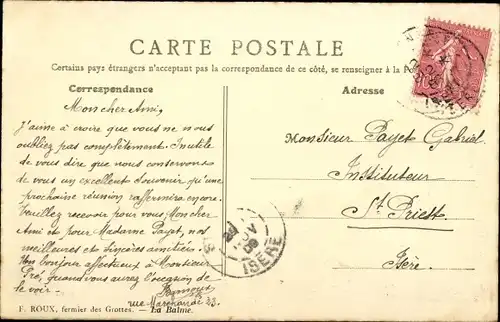 CARTE POSTALE
Certains pays étrangers n'acceptant pas la correspondance de ce côté, se renseigner à la
Correspondance
Adresse
Mon cher Ami,
J'aime à croire que vous ne nous
oubliez pas complètement. Inutile
de vous dire que nous conservons
de vous un excellent souvenir qu'une
prochaine réunion raffermira encore.
Veuillez recevoir pour vous Mon cher
Ami et pour Madame Payet, nos
meilleures et sincères amitiés.
Un bonjour affectueux à Monsieur
Pré, quand vous aurez l'occasion de
le voir.
rue Marchande 23.
Monsieur Payet Gabriel
Instituteur
St Priest
Isère.
ISÈRE
F. ROUX, fermier des Grottes. - La Balme.